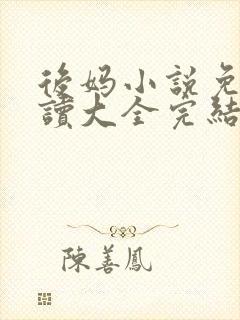 後妈小說免
讀大全完結
陳善鳳